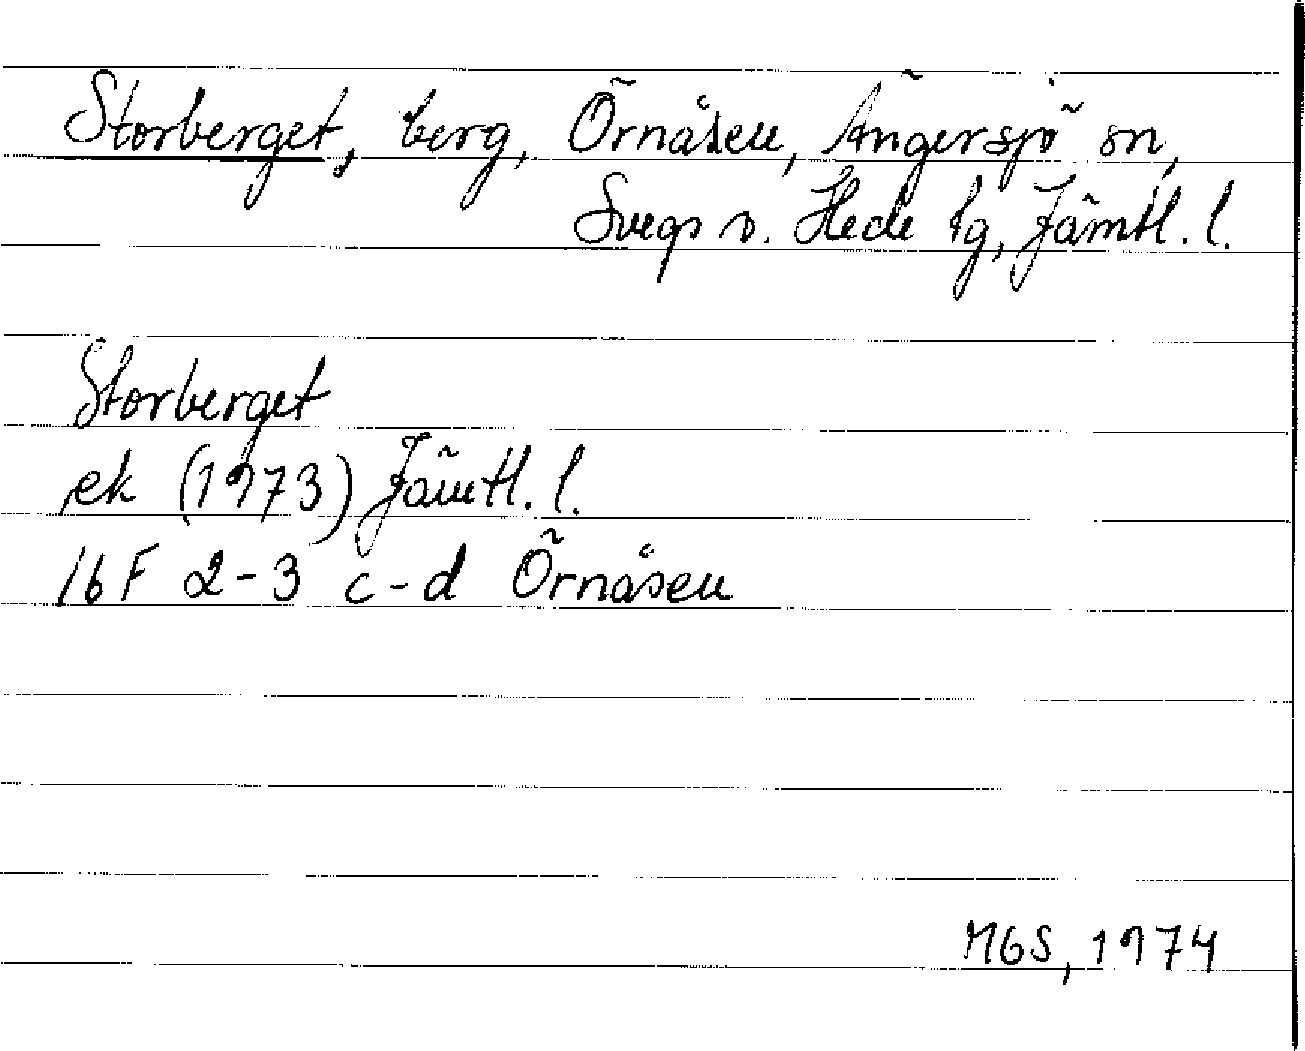 Storberget, berg, Örnåsen, Ängersjö sn,
Svegs o. Hede tg, Jämtl. l.
Storberget
ek (1973) Jämtl. l.
16F 2-3 c-d Örnåsen
MGS, 1974